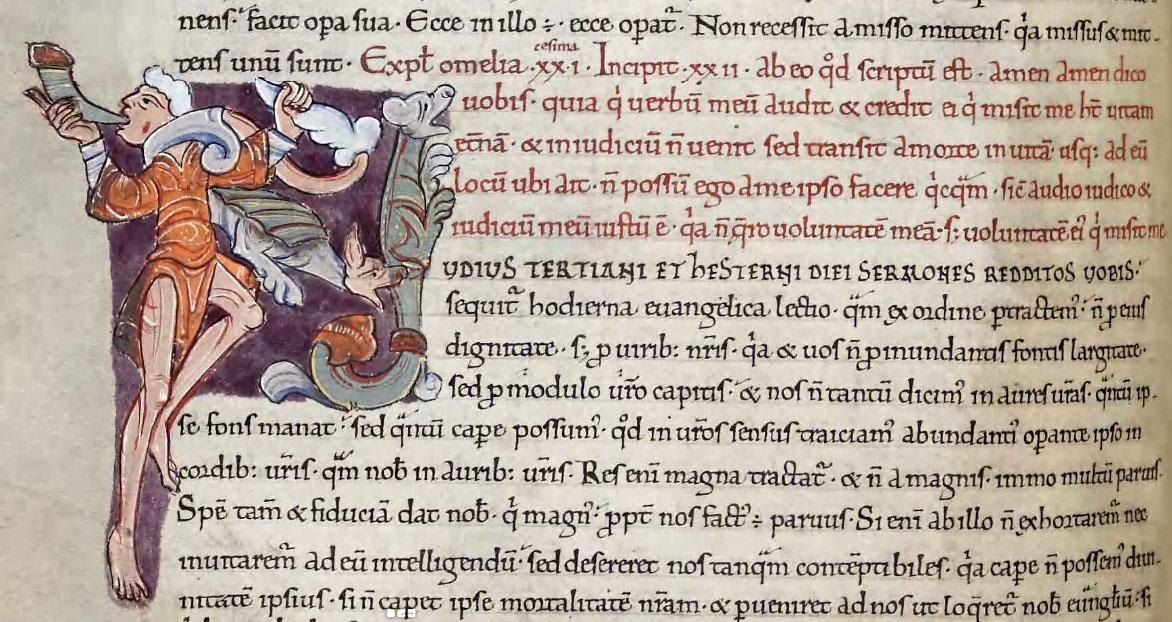 nens· facit opa sua· Ecce in illo ÷· ecce opat᷑· Non recessit a misso mittens· qͣ missus & mit-
tens unū sunt· Explt omelia ·xx·i· cesima Incipit ·xx ii· ab eo qd̄ scriptū est· amen amen dico
uobis· quia qͥ uerbū meū audit & credit ei qͥ misit me ht̄ uitam
et̄nā· & in iudiciū n̄ uenit sed transit a morte in uitā usq; ad eū
locū ubi ait· n̄ possū ego a me ipso facere qͥcqͣm· sic̄ audio iudico &
iudiciū meū iustū ē· qͣ n̄ q̄ro uoluntatē meā· s; uoluntatē eiꝰ qͥ misit me
UDIUS TERTIANI ET HESTERNI DIEI SERMONES REDDITOS UOBIS·
sequit᷑ hodierna euangelica lectio· qm̄ ex ordine ꝑtractemꝰ· n̄ ꝓ eius
dignitate· s; ꝓ uirib: nr̄is· qͣ & uos n̄ ꝓ inundantis fontis largitate·
sed ꝓ modulo ur̄o capitis· & nos n̄ tantū dicimꝰ in aures ur̄as· qͣntū ip-
se fons manat· sed qͣntū cape possumꝰ· qd̄ in ur̄os sensus traiciamꝰ abundantiꝰ opante ipso in
cordib: ur̄is· qͣm nob̄ in aurib: ur̄is· Res eni magna tractat᷑· & n̄ a magnis· immo multū paruis·
Spē tam̄ & fiduciā dat nob̄· qͥ magnꝰ· ꝓpt̄ nos factꝰ ÷ paruus· Si eni ab illo n̄ exhortarem᷑ nec
inuitarem᷑ ad eū intelligendū· sed desereret nos tanqͣm contēptibiles· qͣ cape n̄ possemꝰ diui-
nitatē ipsius· si n̄ capet ipse mortalitatē nr̄am· & ꝑueniret ad nos ut loqͥret᷑ nob̄ euangliū· si